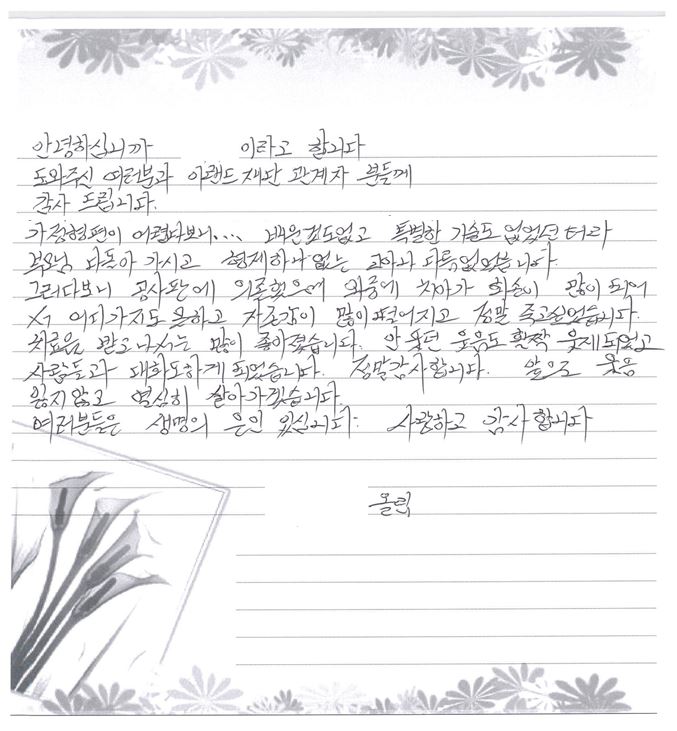 안녕하십니까 이라고 합니다
도와주신 여러분과 이랜드 재단 관계자 분들께
감사 드립니다.
가정형편이 어렵다보니... 배운것도없고 특별한 기술도 없었던 터라
부모님 다돌아 가시고 형제하나없는 고아나 다름없었습니다
그러다보니 공사판에 의존했으며 와중에 치아가 화손이 많이 되어
서 어디가지도 못하고 자존감이 많이떨어지고 정말 죽고싶었습니다.
치료을 받고나서는 많이 좋아졌습니다. 안 웃던 웃음도 활짝 웃게되었고
사람들과 대화도하게 되었습니다. 정말감사합니다. 앞으로 웃음
잃지않고 열심히 살아가겠습니다.
여러분들은 생명의 은인 있십니다. 사랑하고 감사합니다
올림